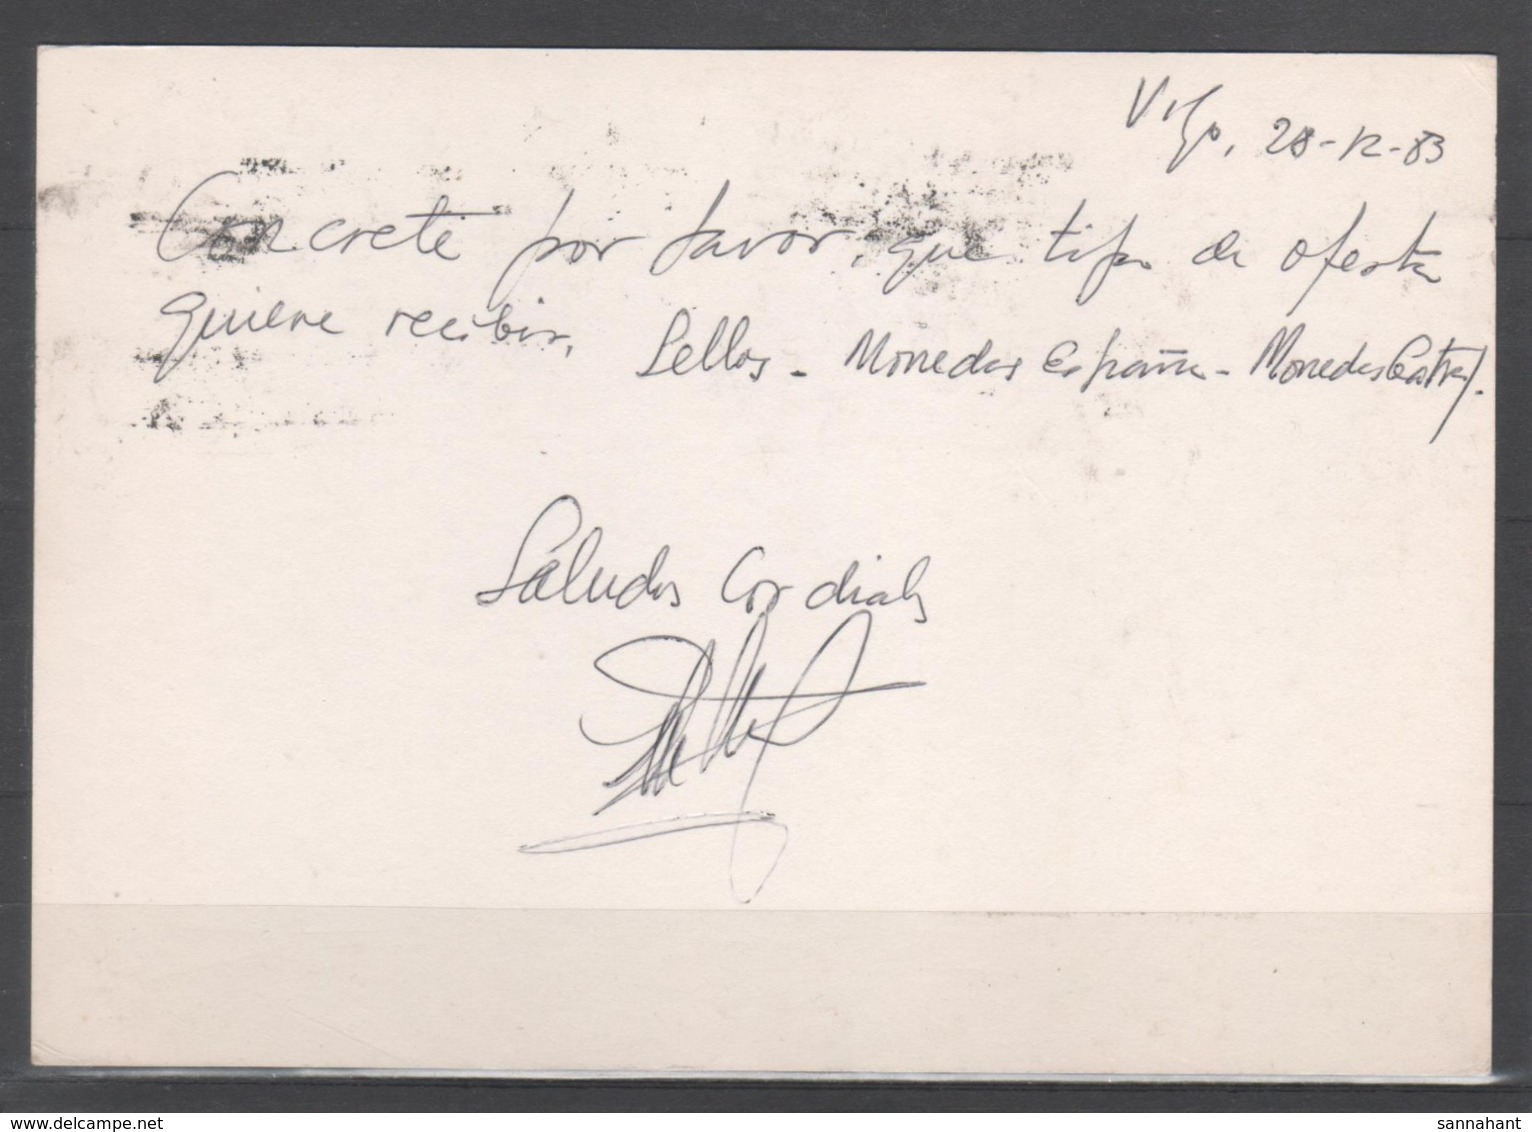 Vigo, 28-12-83
Concrete por favor, que tipo de oferta
quiere recibir. Sellos - Monedas España - Monedas
Saludos Cordiales
delcampe.net
sannahant